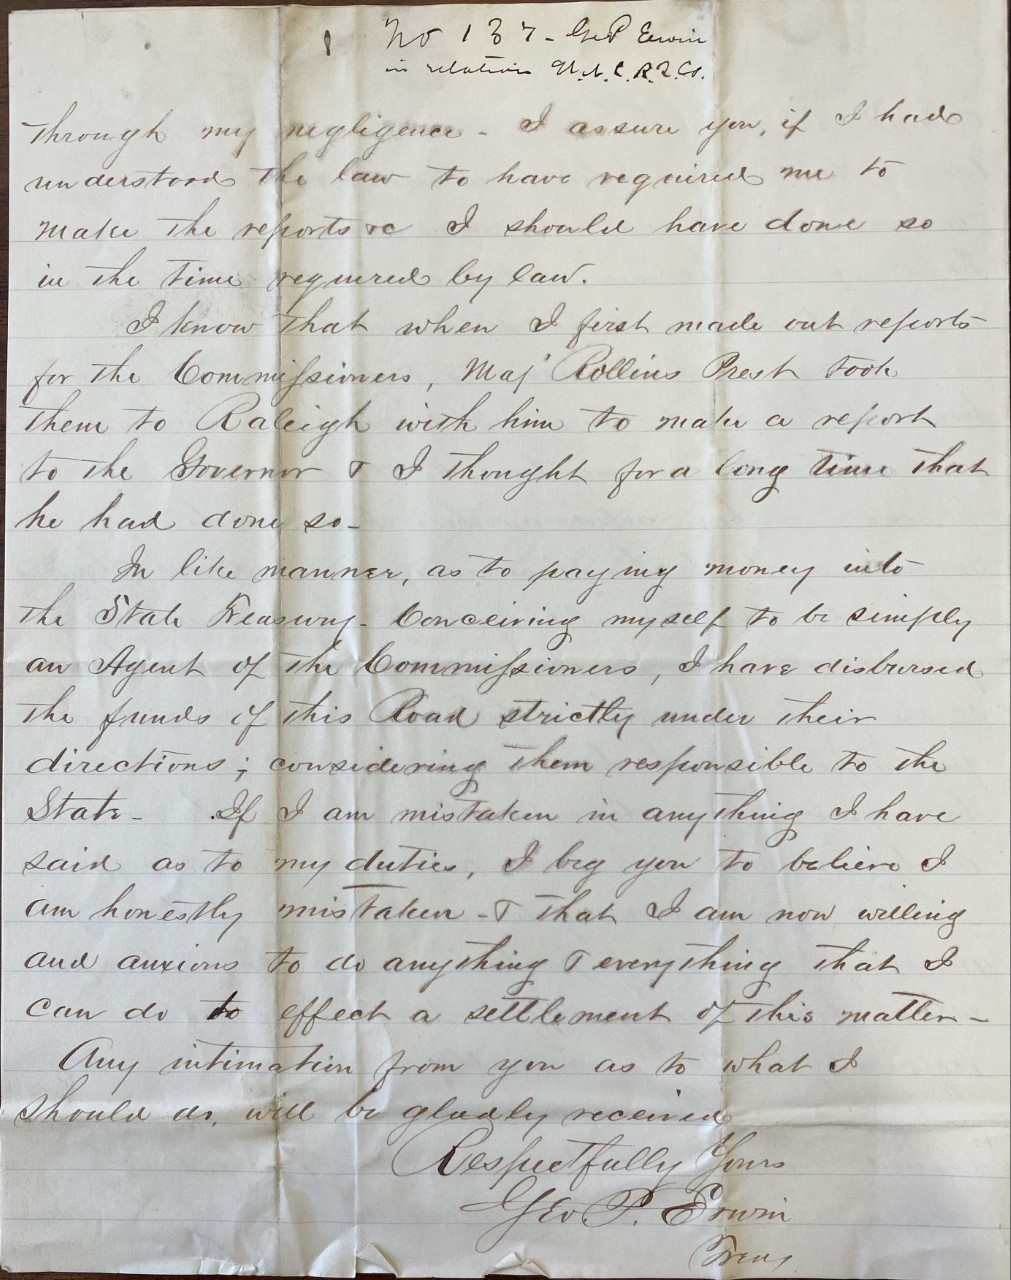 No 137 - Geo P. Erwin
in relation W. N. C. R. R. Co.
through my negligence - I assure you, if I had
understood the law to have required me to
make the reports &c I should have done so
in the time required by law.
I know that when I first made out reports
for the Commissioners, Maj Rollins Prest took
them to Raleigh with him to make a report
to the Governor & I thought for a long time that
he had done so -
In like manner, as to paying money into
the State Treasury - Conceiving myself to be simply
an Agent of the Commissioners, I have disbursed
the funds of this Road strictly under their
directions; considering them responsible to the
State - If I am mistaken in anything I have
said as to my duties, I beg you to believe I
am honestly mistaken - & that I am now willing
and anxious to do anything & everything that I
can do to effect a settlement of this matter -
Any intimation from you as to what I
should do, will be gladly received
Respectfully Yours
Geo. P. Erwin
Treas